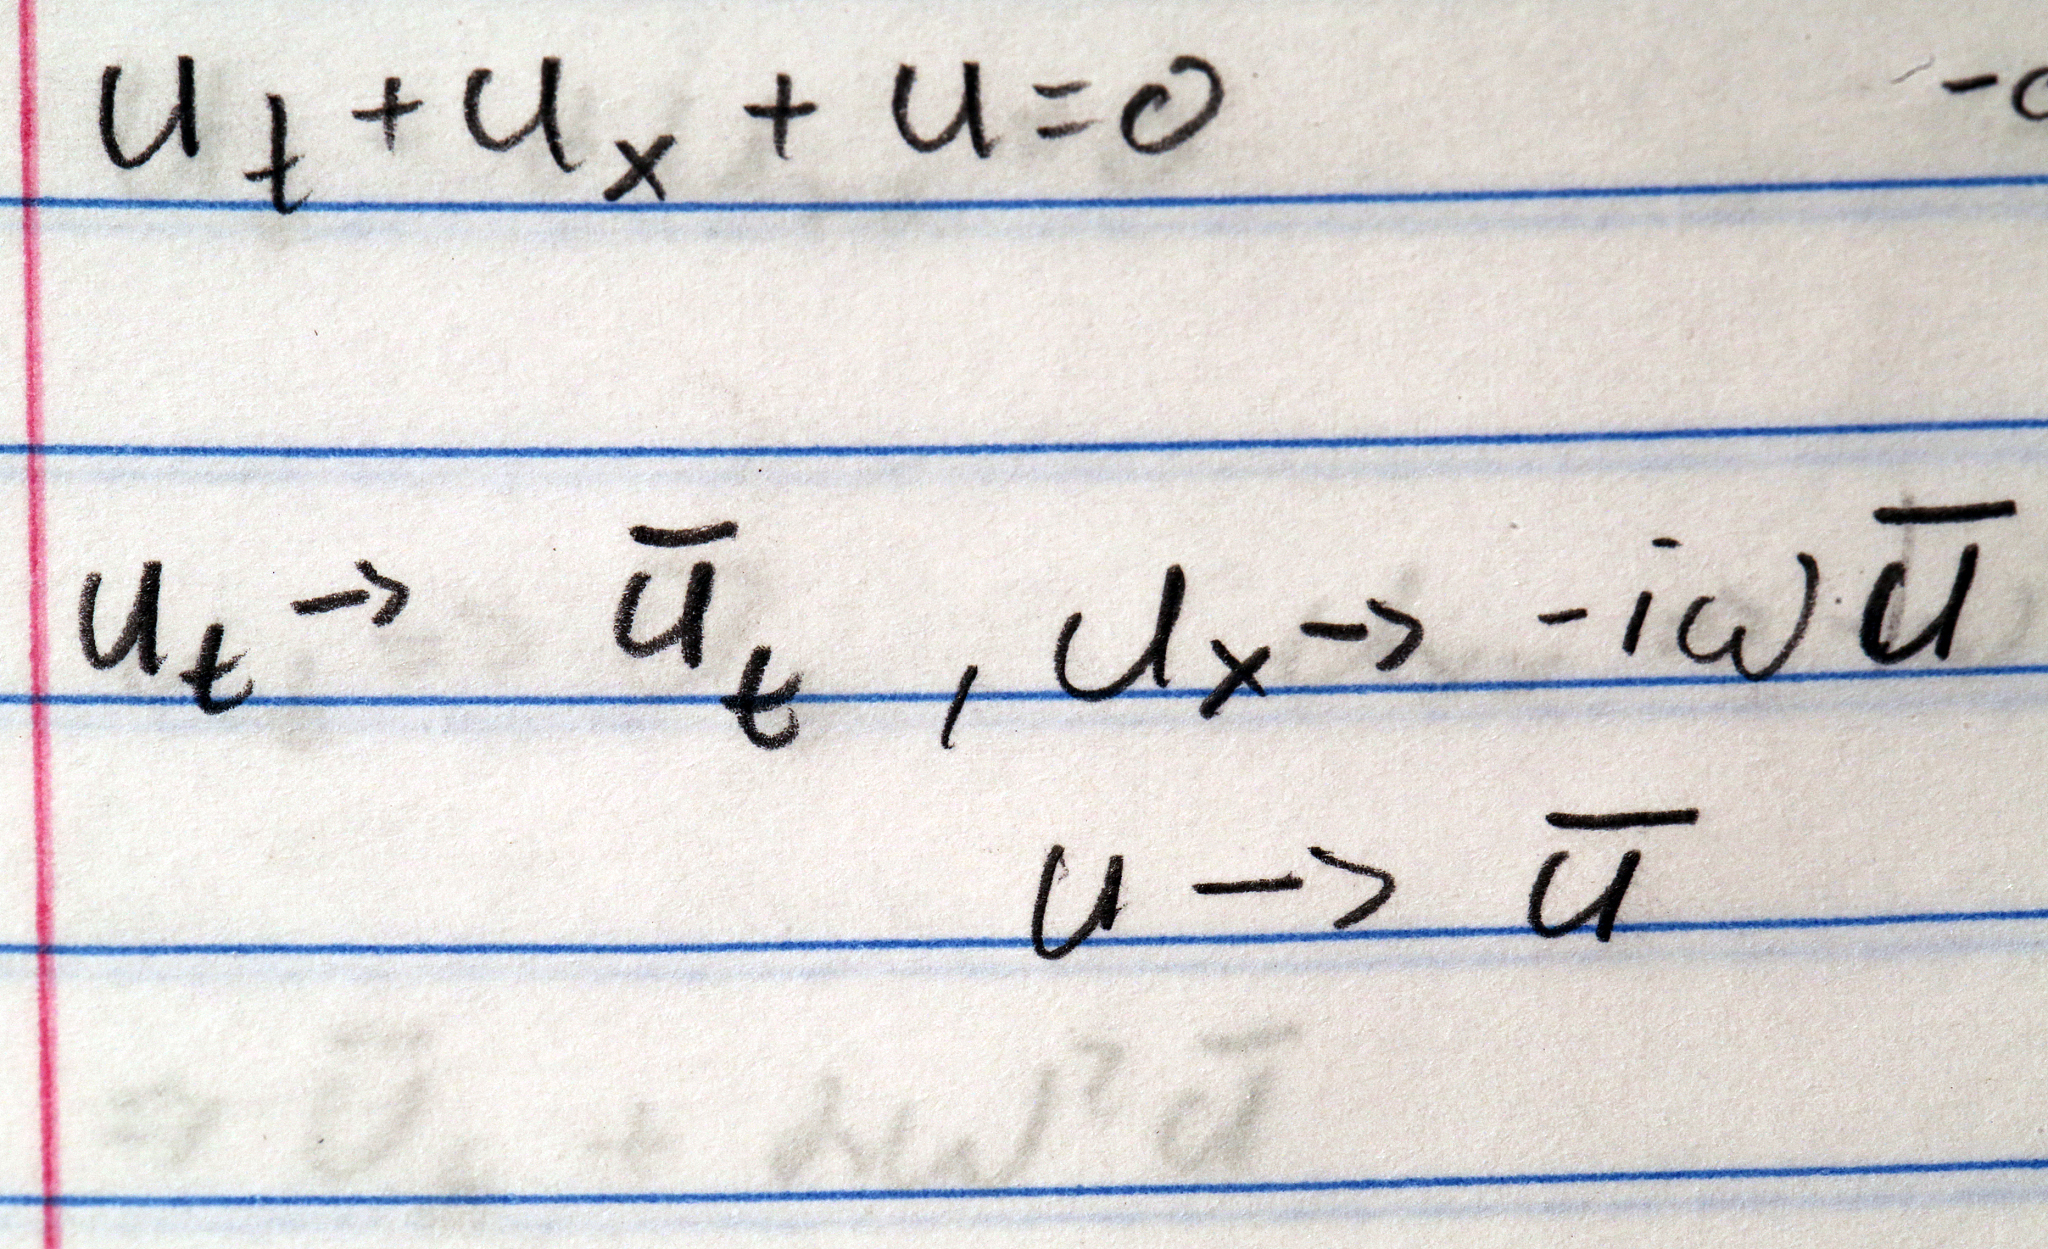 u_t + u_x + u = 0
u_t → ū_t , u_x → -iω ū
u → ū